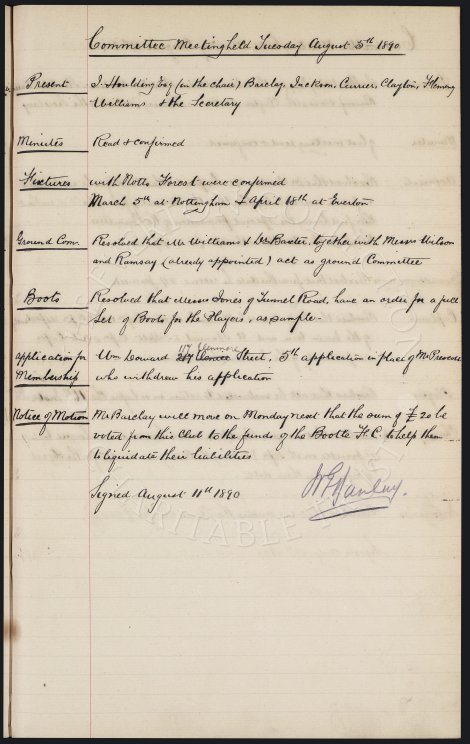 Committee Meeting held Tuesday August 5th 1890
Present J. Houlding Esq (in the chair) Barclay, Jackson, Currier, Clayton, Fleming
Williams & the Secretary
Minutes Read & confirmed
Fixtures with Notts Forest were confirmed
March 5th at Nottingham & April 18th at Everton
Ground Com. Resolved that Mr Williams & Dr Baxter, together with Messrs Wilson
and Ramsay (already appointed) act as ground Committee
Boots Resolved that Messrs Jones of Tunnel Road, have an order for a full
Set of Boots for the Players, as sample-
117 Glenmore
application for Wm Doward Street, 5th application in place of Mr
Membership who withdrew his application
Notice of Motion Mr Barclay will move on Monday next that the sum of £20 be
voted from this Club to the funds of the Bootle F.C. to help them
to liquidate their liabilities
Signed August 11th 1890
CHARITABLE